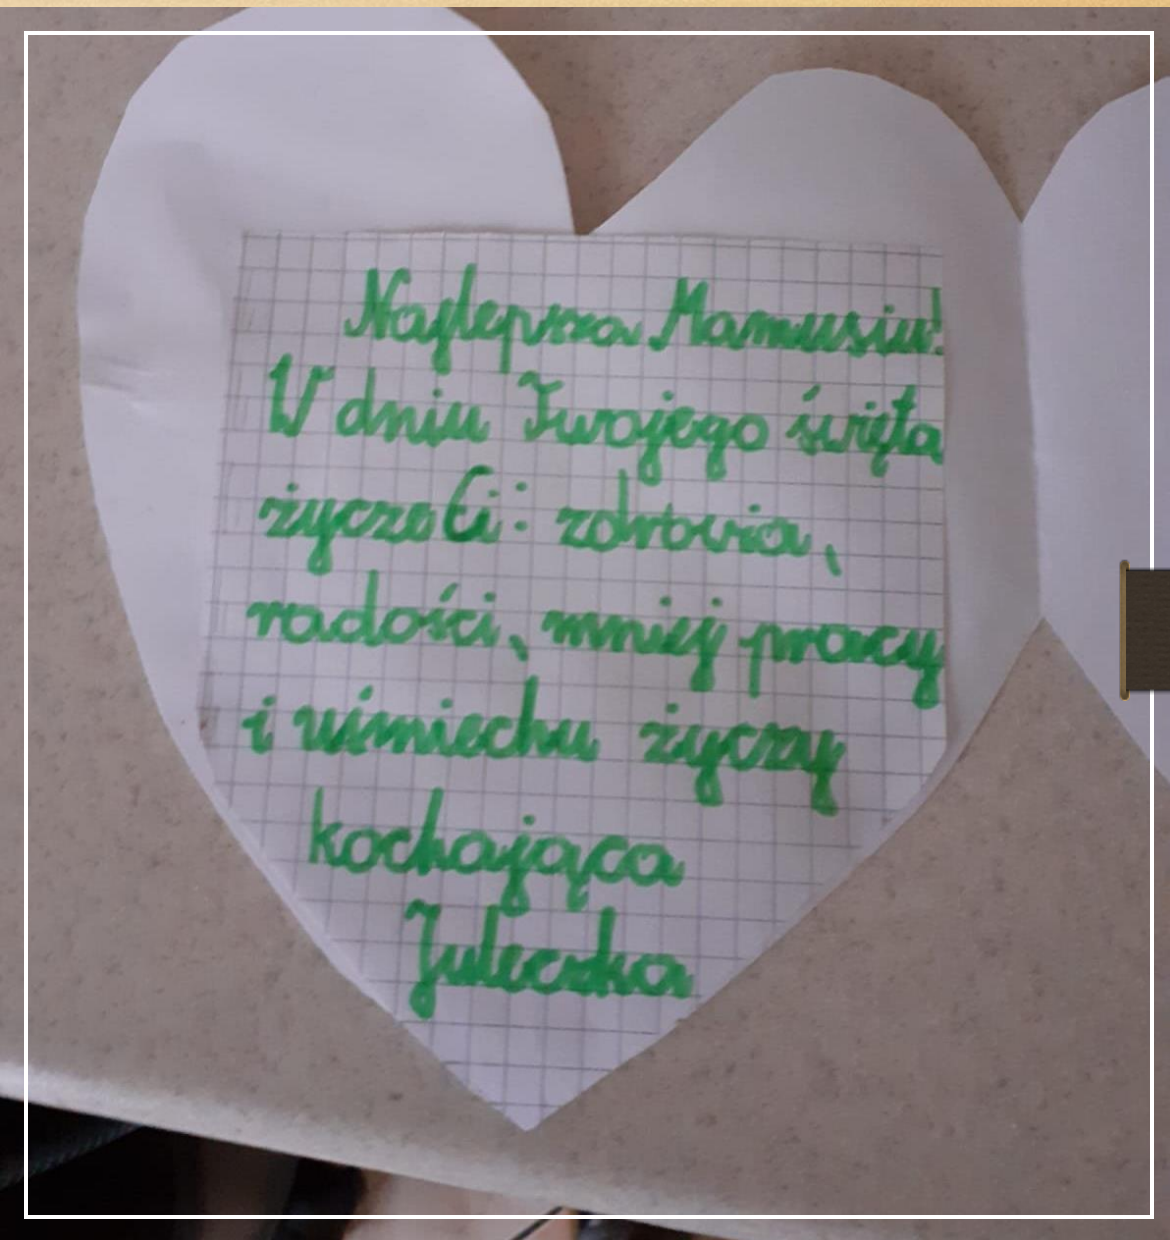 Najlepsza Mamusiu!
W dniu Twojego święta
życzę Ci: zdrowia,
radości, mniej pracy
i uśmiechu życzy
kochająca
Juleczka